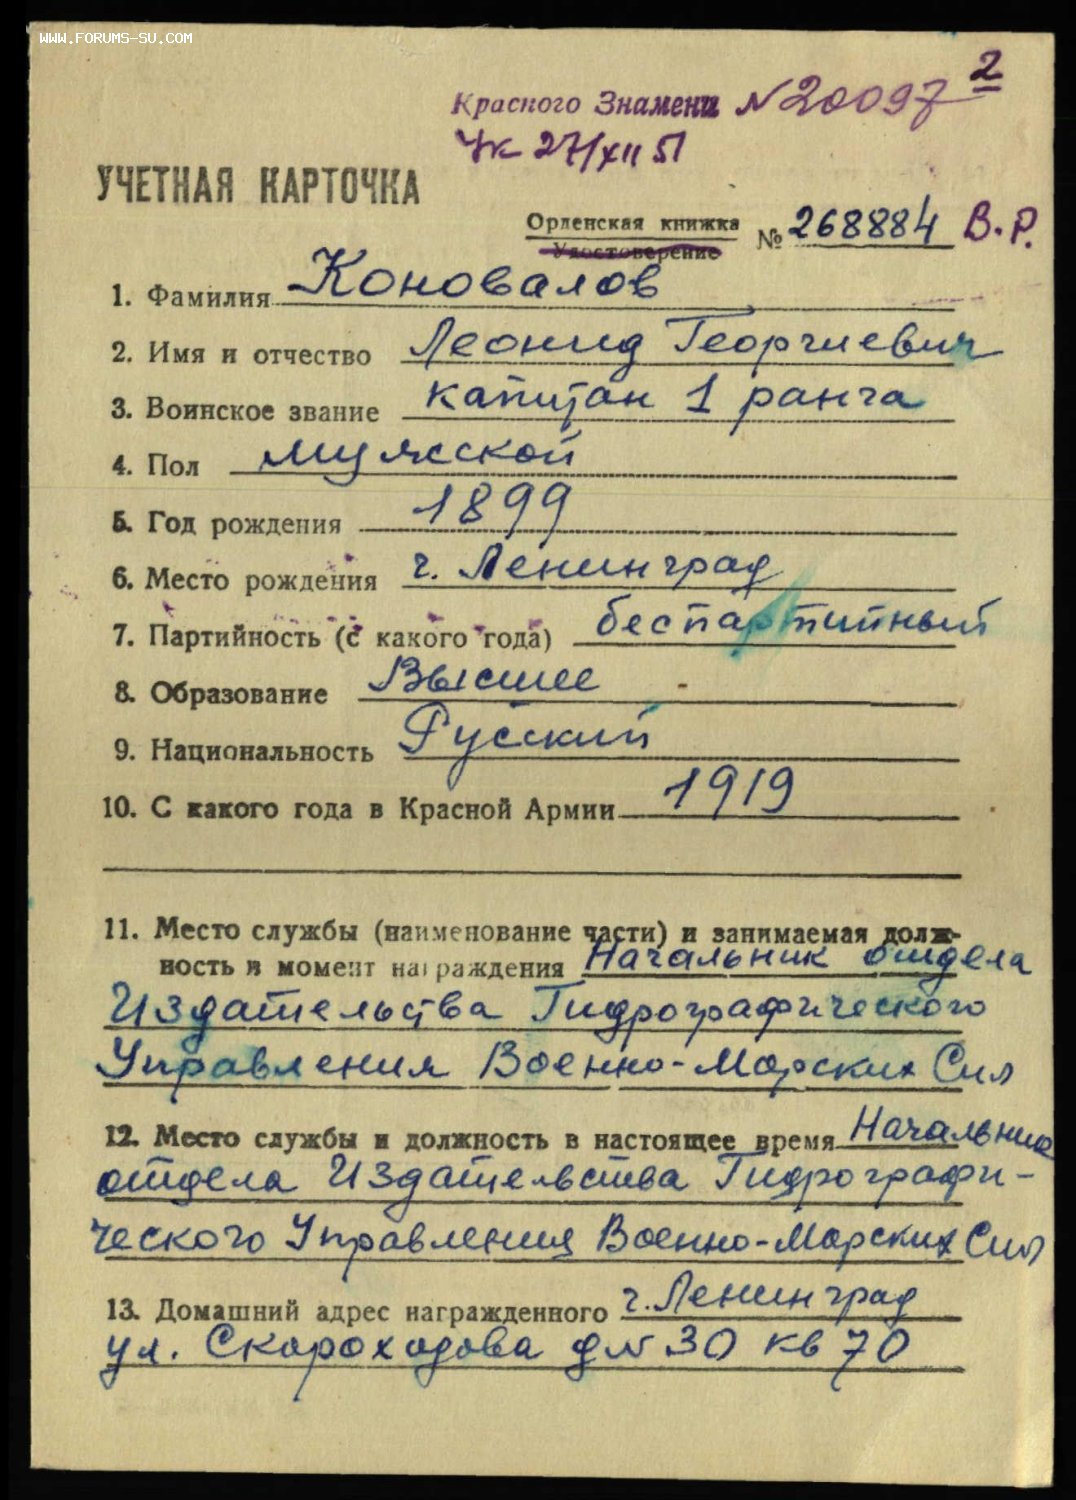 WWW.FORUMS-SU.COM
2
Красного Знамени N 20097
Ук 27/XII 51
УЧЕТНАЯ КАРТОЧКА
Орденская книжка
Удостоверение
№ 268884 В.Р.
1. Фамилия Коновалов
2. Имя и отчество Леонид Георгиевич
3. Воинское звание капитан 1 ранга
4. Пол мужской
5. Год рождения 1899
6. Место рождения г. Ленинград
7. Партийность (с какого года) беспартийный
8. Образование Высшее
9. Национальность Русский
10. С какого года в Красной Армии 1919
11. Место службы (наименование части) и занимаемая долж-
ность в момент награждения Начальник отдела
Издательства Гидрографического
Управления Военно-Морских Сил
12. Место службы и должность в настоящее время Начальник
отдела Издательства Гидрографи-
ческого Управления Военно-Морских Сил
13. Домашний адрес награжденного г. Ленинград
ул. Скороходова д N 30 кв 70